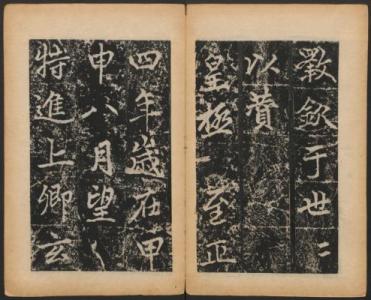 斁欽于世〻
以贊
皇極 至正
四年歲在甲
申八月望
特進上卿玄